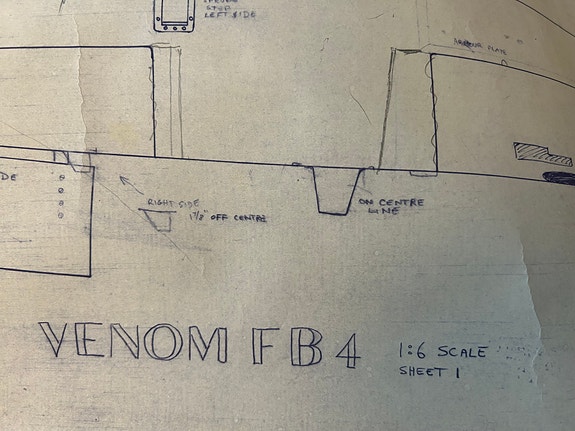 STOP
LEFT SIDE
ARMOUR PLATE
DE
RIGHT SIDE
1⅞" OFF CENTRE
ON CENTRE
LINE
VENOM FB 4
1:6 SCALE
SHEET 1